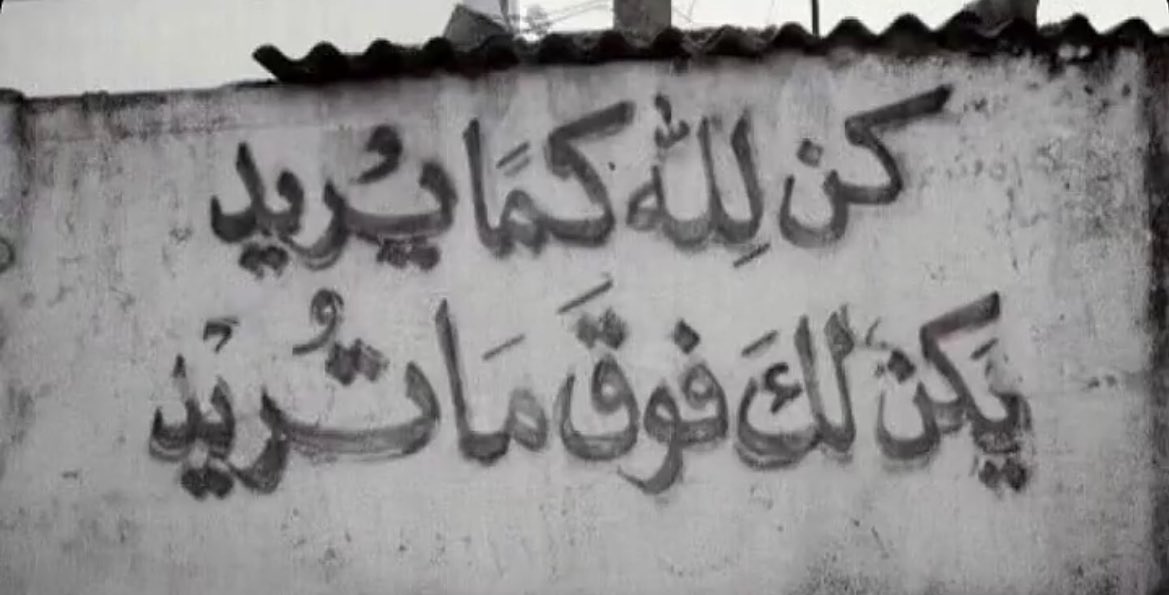 كن لِلّٰه كمَا يُريد
يَكن لكَ فوقَ مَا تُريد